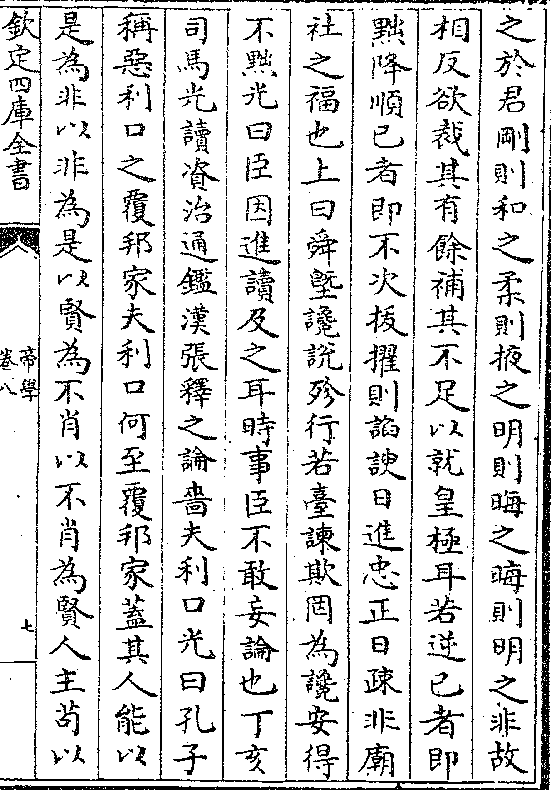 之於君剛則和之柔則掖之明則晦之晦則明之非故
相反欲裁其有餘補其不足以就皇極耳若逆己者即
黜降順己者即不次拔擢則諂諛日進忠正日疎非廟
社之福也上曰舜塈讒說殄行若臺諫欺罔為讒安得
不黜光曰臣因進讀及之耳時事臣不敢妄論也丁亥
司馬光讀資治通鑑漢張釋之論嗇夫利口光曰孔子
稱惡利口之覆邦家夫利口何至覆邦家蓋其人能以
是為非以非為是以賢為不肖以不肖為賢人主苟以
欽定四庫全書
帝學
卷八
七